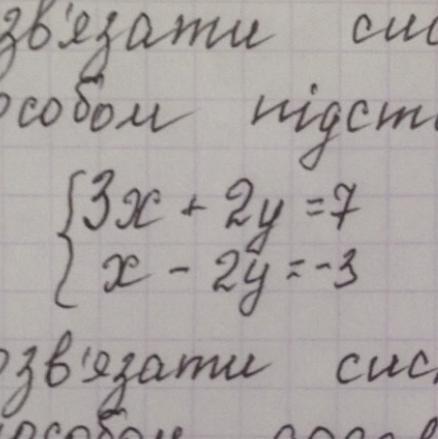 зв'язати сис
особом підст
{3x + 2y = 7
x - 2y = -3
озв'язати сис
способом